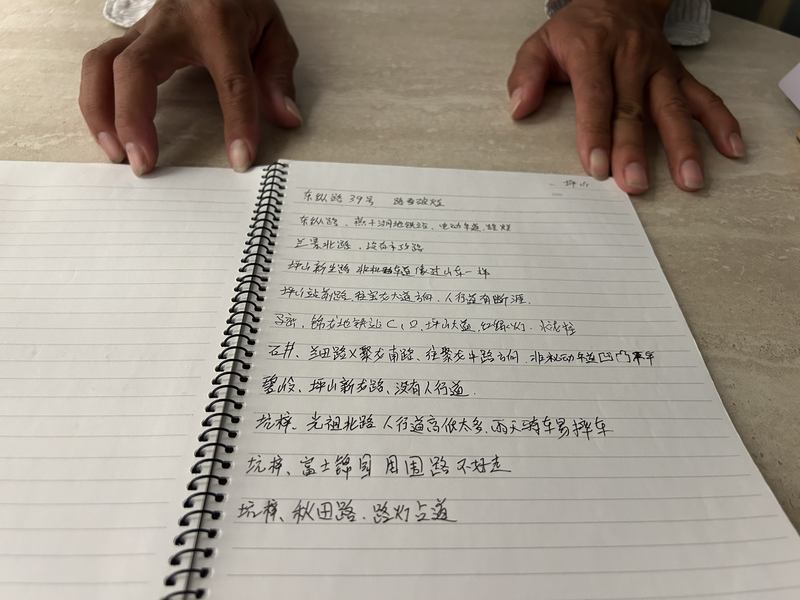 坪山
东纵路39号 路
东纵路、燕子湖地铁站、电动车道
兰景北路、没有
坪山新生路 非机动车道像过山车一样
坪山站前路、往宝龙大道方向、人行道有断涯.
锦龙地铁站C、D、坪山大道、红绿灯、
石井、兰田路X聚龙南路、往聚龙中路方向、非机动车道凹凸
碧岭、坪山新龙路、没有人行道.
坑梓、光祖北路 人行道高低太多、雨天骑车易摔车
坑梓、富士锦园 周围路不好走
坑梓、秋田路、路灯占道